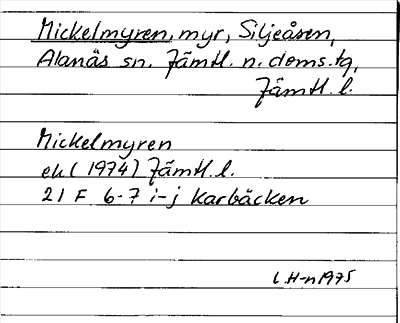 Mickelmyren, myr, Siljeåsen,
Alanäs sn. Jämtl. n. doms.tg,
Jämtl. l.
Mickelmyren
ek (1974) Jämtl. l.
21 F 6-7 i-j Karbäcken
L H-n 1975